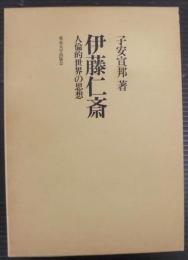 子安宣邦 著
伊藤仁斎
人倫的世界の思想
東京大学出版会